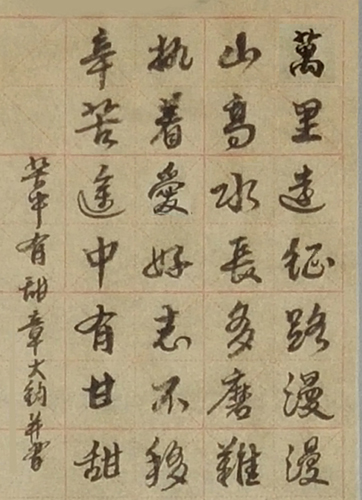 萬里遠征路漫漫
山高水長多磨難
执着愛好志不移
辛苦途中有甘甜
苦中有甜章大钧并書